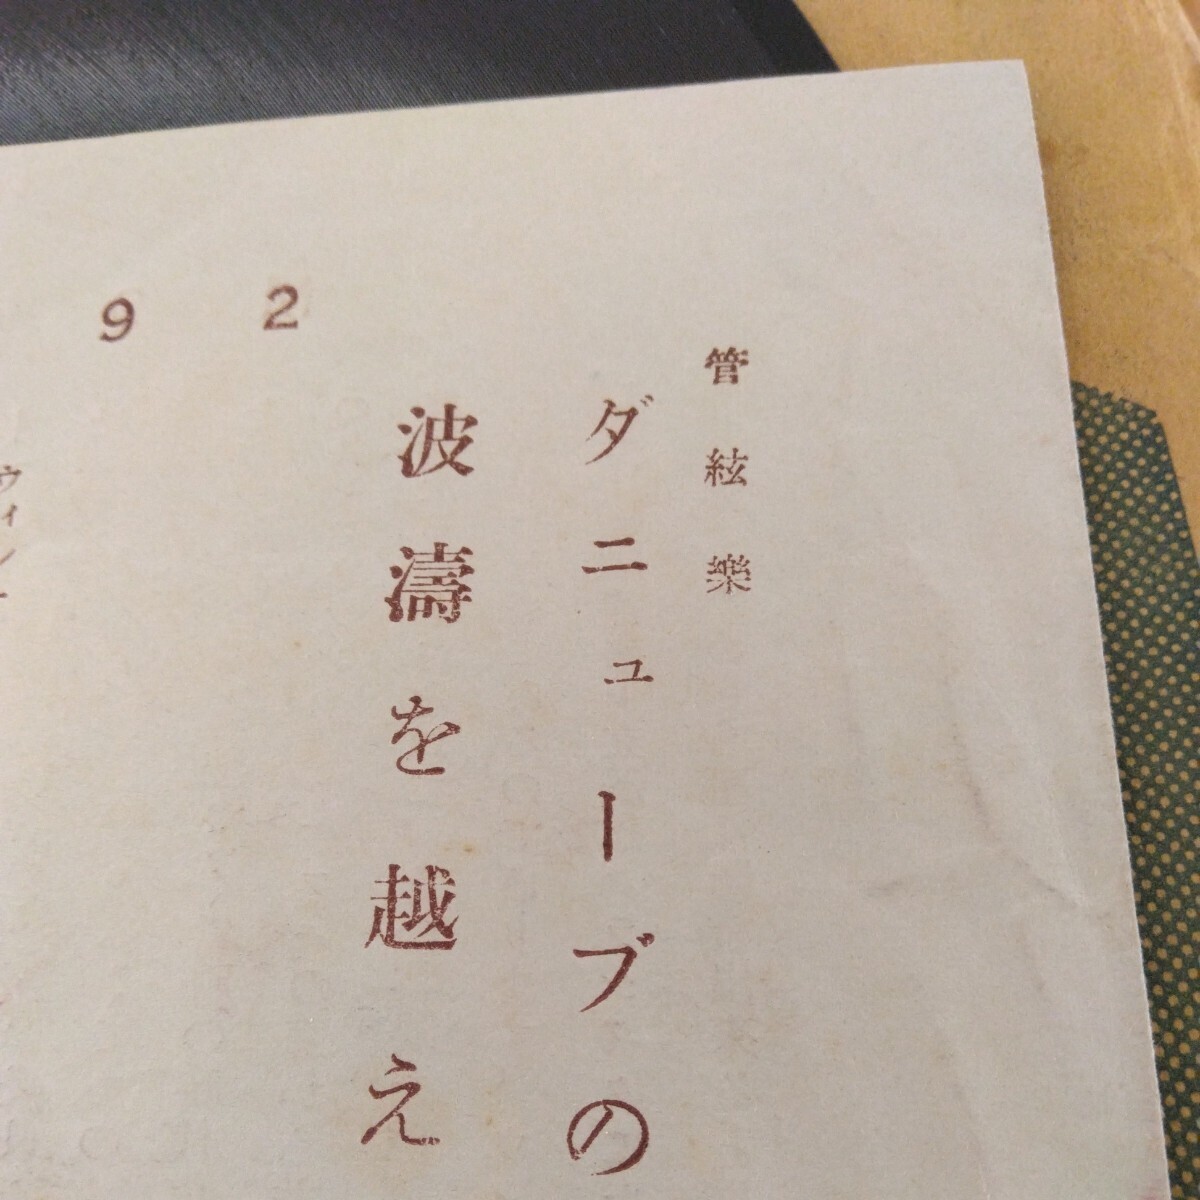 管絃樂
ダニューブの
波濤を越え
9 2